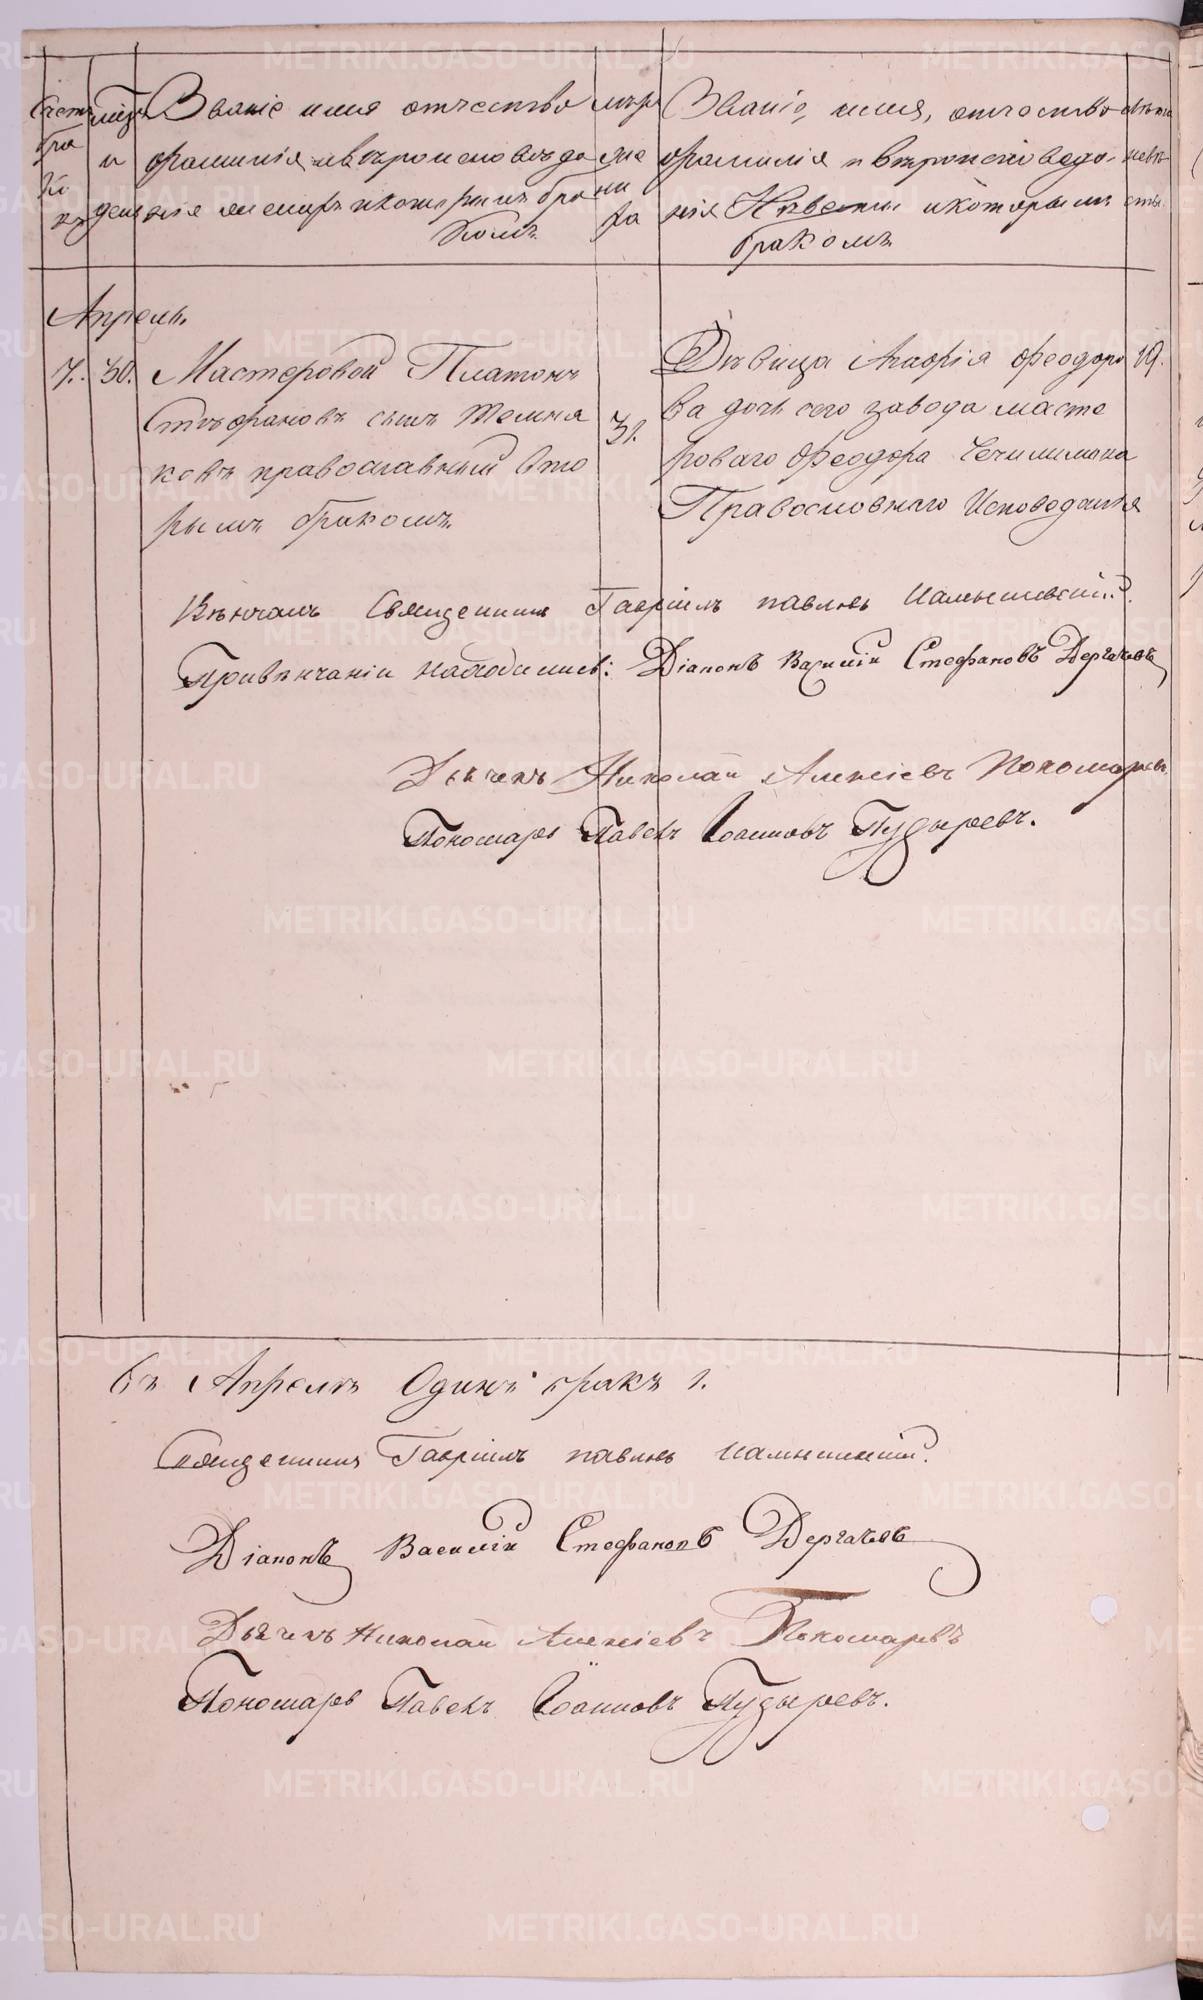 Счетъ бра ко въ
мѣся и день
Званіе имя отчество
фамилія и вѣроисповѣда
нія жениха и которымъ бра
комъ
лѣта же ни ха
Званіе, имя, отчество
фамилія и вѣроисповеда-
нія Невесты и которымъ
бракомъ
лѣта невѣ сты
Апрель.
7. 30. Мастеровой Платонъ
Стѣфановъ сынъ Темня
ковъ православный вто
рымъ бракомъ
31.
Дѣвица Марія Феодоро 19.
ва дочь сего завода масте
роваго Феодора
Православнаго Исповеданія
Вѣнчалъ Священникъ Гавріилъ павловъ
При вѣнчаніи находились: Діаконъ Василій Стефановъ Дергачевъ
Дьячекъ Николай Алексіевъ Пономаревъ
Пономарь Павелъ Іоанновъ Пузыревъ.
Въ Апрелѣ Одинъ бракъ 1.
Священникъ Гавріилъ павловъ
Діаконъ Василій Стефановъ Дергачевъ
Дьячекъ Николай Алексіевъ Пономаревъ
Пономарь Павелъ Іоанновъ Пузыревъ.
METRIKI.GASO-URAL.RU